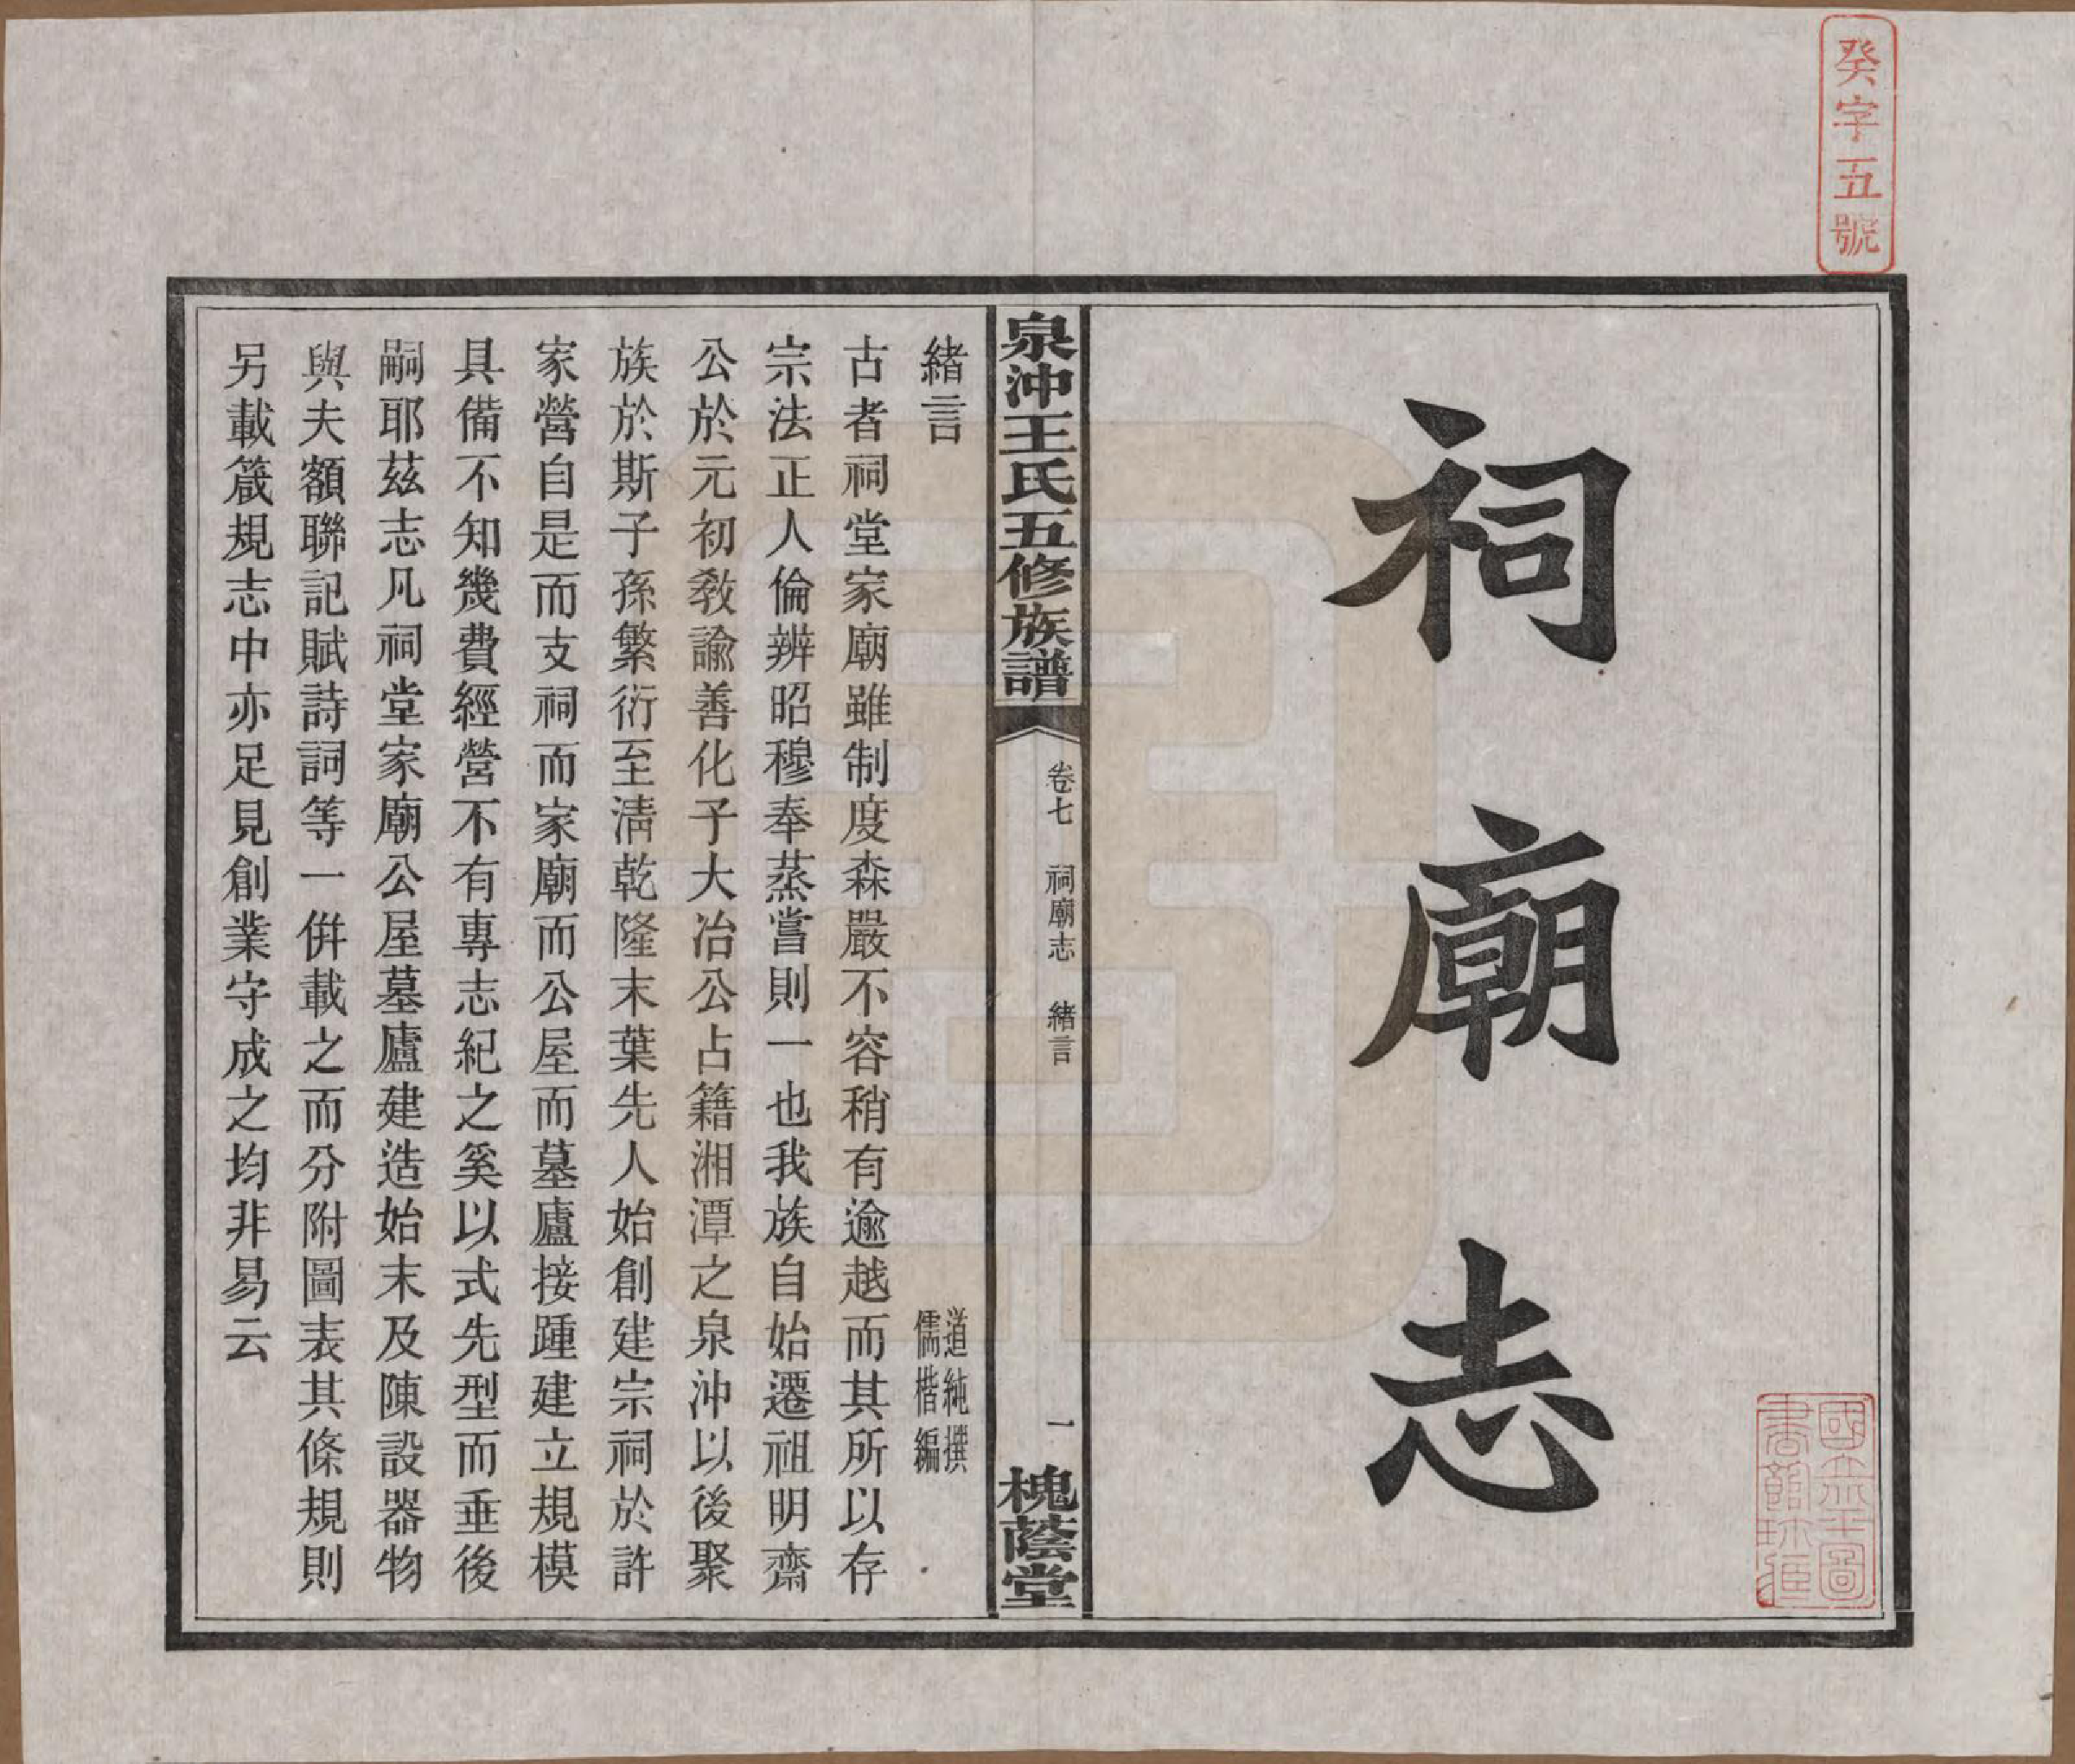 癸字五號
祠廟志
國立北平圖
書館珍藏
泉沖王氏五修族譜
卷七　祠廟志　緒言
一
槐蔭堂
緒言
道純撰
儒楷編
古者祠堂家廟雖制度森嚴不容稍有逾越而其所以存
宗法正人倫辨昭穆奉蒸嘗則一也我族自始遷祖明齋
公於元初教諭善化子大冶公占籍湘潭之泉沖以後聚
族於斯子孫繁衍至清乾隆末葉先人始創建宗祠於許
家營自是而支祠而家廟而公屋而墓廬接踵建立規模
具備不知幾費經營不有專志紀之奚以式先型而垂後
嗣耶茲志凡祠堂家廟公屋墓廬建造始末及陳設器物
與夫額聯記賦詩詞等一併載之而分附圖表其條規則
另載箴規志中亦足見創業守成之均非易云